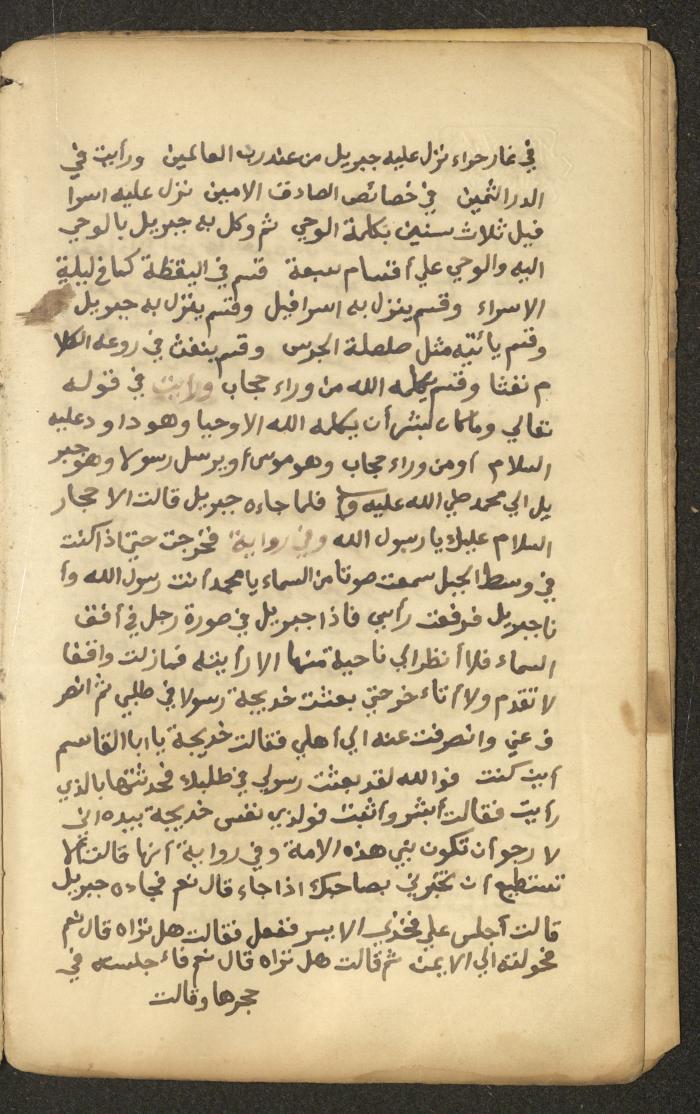 في غار حراء نزل عليه جبريل من عند رب العالمين ورأيت في
الدر الثمين في خصائص الصادق الامين نزل عليه اسرا
فيل ثلاث سنين بكلمة الوحي ثم وكل به جبريل بالوحي
اليه والوحي علي أقسام سبعة قسم في اليقظة كما في ليلة
الاسراء وقسم ينزل به اسرافيل وقسم ينزل به جبريل
وقسم يأتيه مثل صلصلة الجرس وقسم ينفث في روعه الكلا
م نفثا وقسم يكلمه الله من وراء حجاب ورأيت في قوله
تعالي وما كان لبشر أن يكلمه الله الا وحيا وهو داود عليه
السلام أو من وراء حجاب وهو موسى أو يرسل رسولا وهو جبر
يل الي محمد صلي الله عليه فلما جاءه جبريل قالت الاحجار
السلام عليك يا رسول الله وفي رواية فخرجت حتي اذا كنت
في وسط الجبل سمعت صوتا من السماء يا محمد أنت رسول الله وأ
نا جبريل فرفعت رأسي فاذا جبريل في صورة رجل في أفق
السماء فلا أنظر الي ناحية منها الا رأيته فما زلت واقفا
لا تقدم ولا أتاءخر حتي بعثت خديجة رسولا في طلبي ثم انصر
ف عني وانصرفت عنه الي أهلي فقالت خديجة يا ابا القاسم
أين كنت فو الله لقد بعثت رسولي في طلبك فحدثتها بالذي
رأيت فقالت أبشر وأثبت فو لذي نفس خديجة بيده اني
لا رجو أن تكون نبي هذه الامة وفي رواية أنها قالت
تستطيع أن تخبرني بصاحبك اذا جاء قال نعم فجاءه جبريل
قالت أجلس علي فخذي الايسر ففعل فقالت هل تراه قال نعم
فحولته الي الايمن ثم قالت هل تراه قال نعم فاءجلسته في
حجرها وقالت